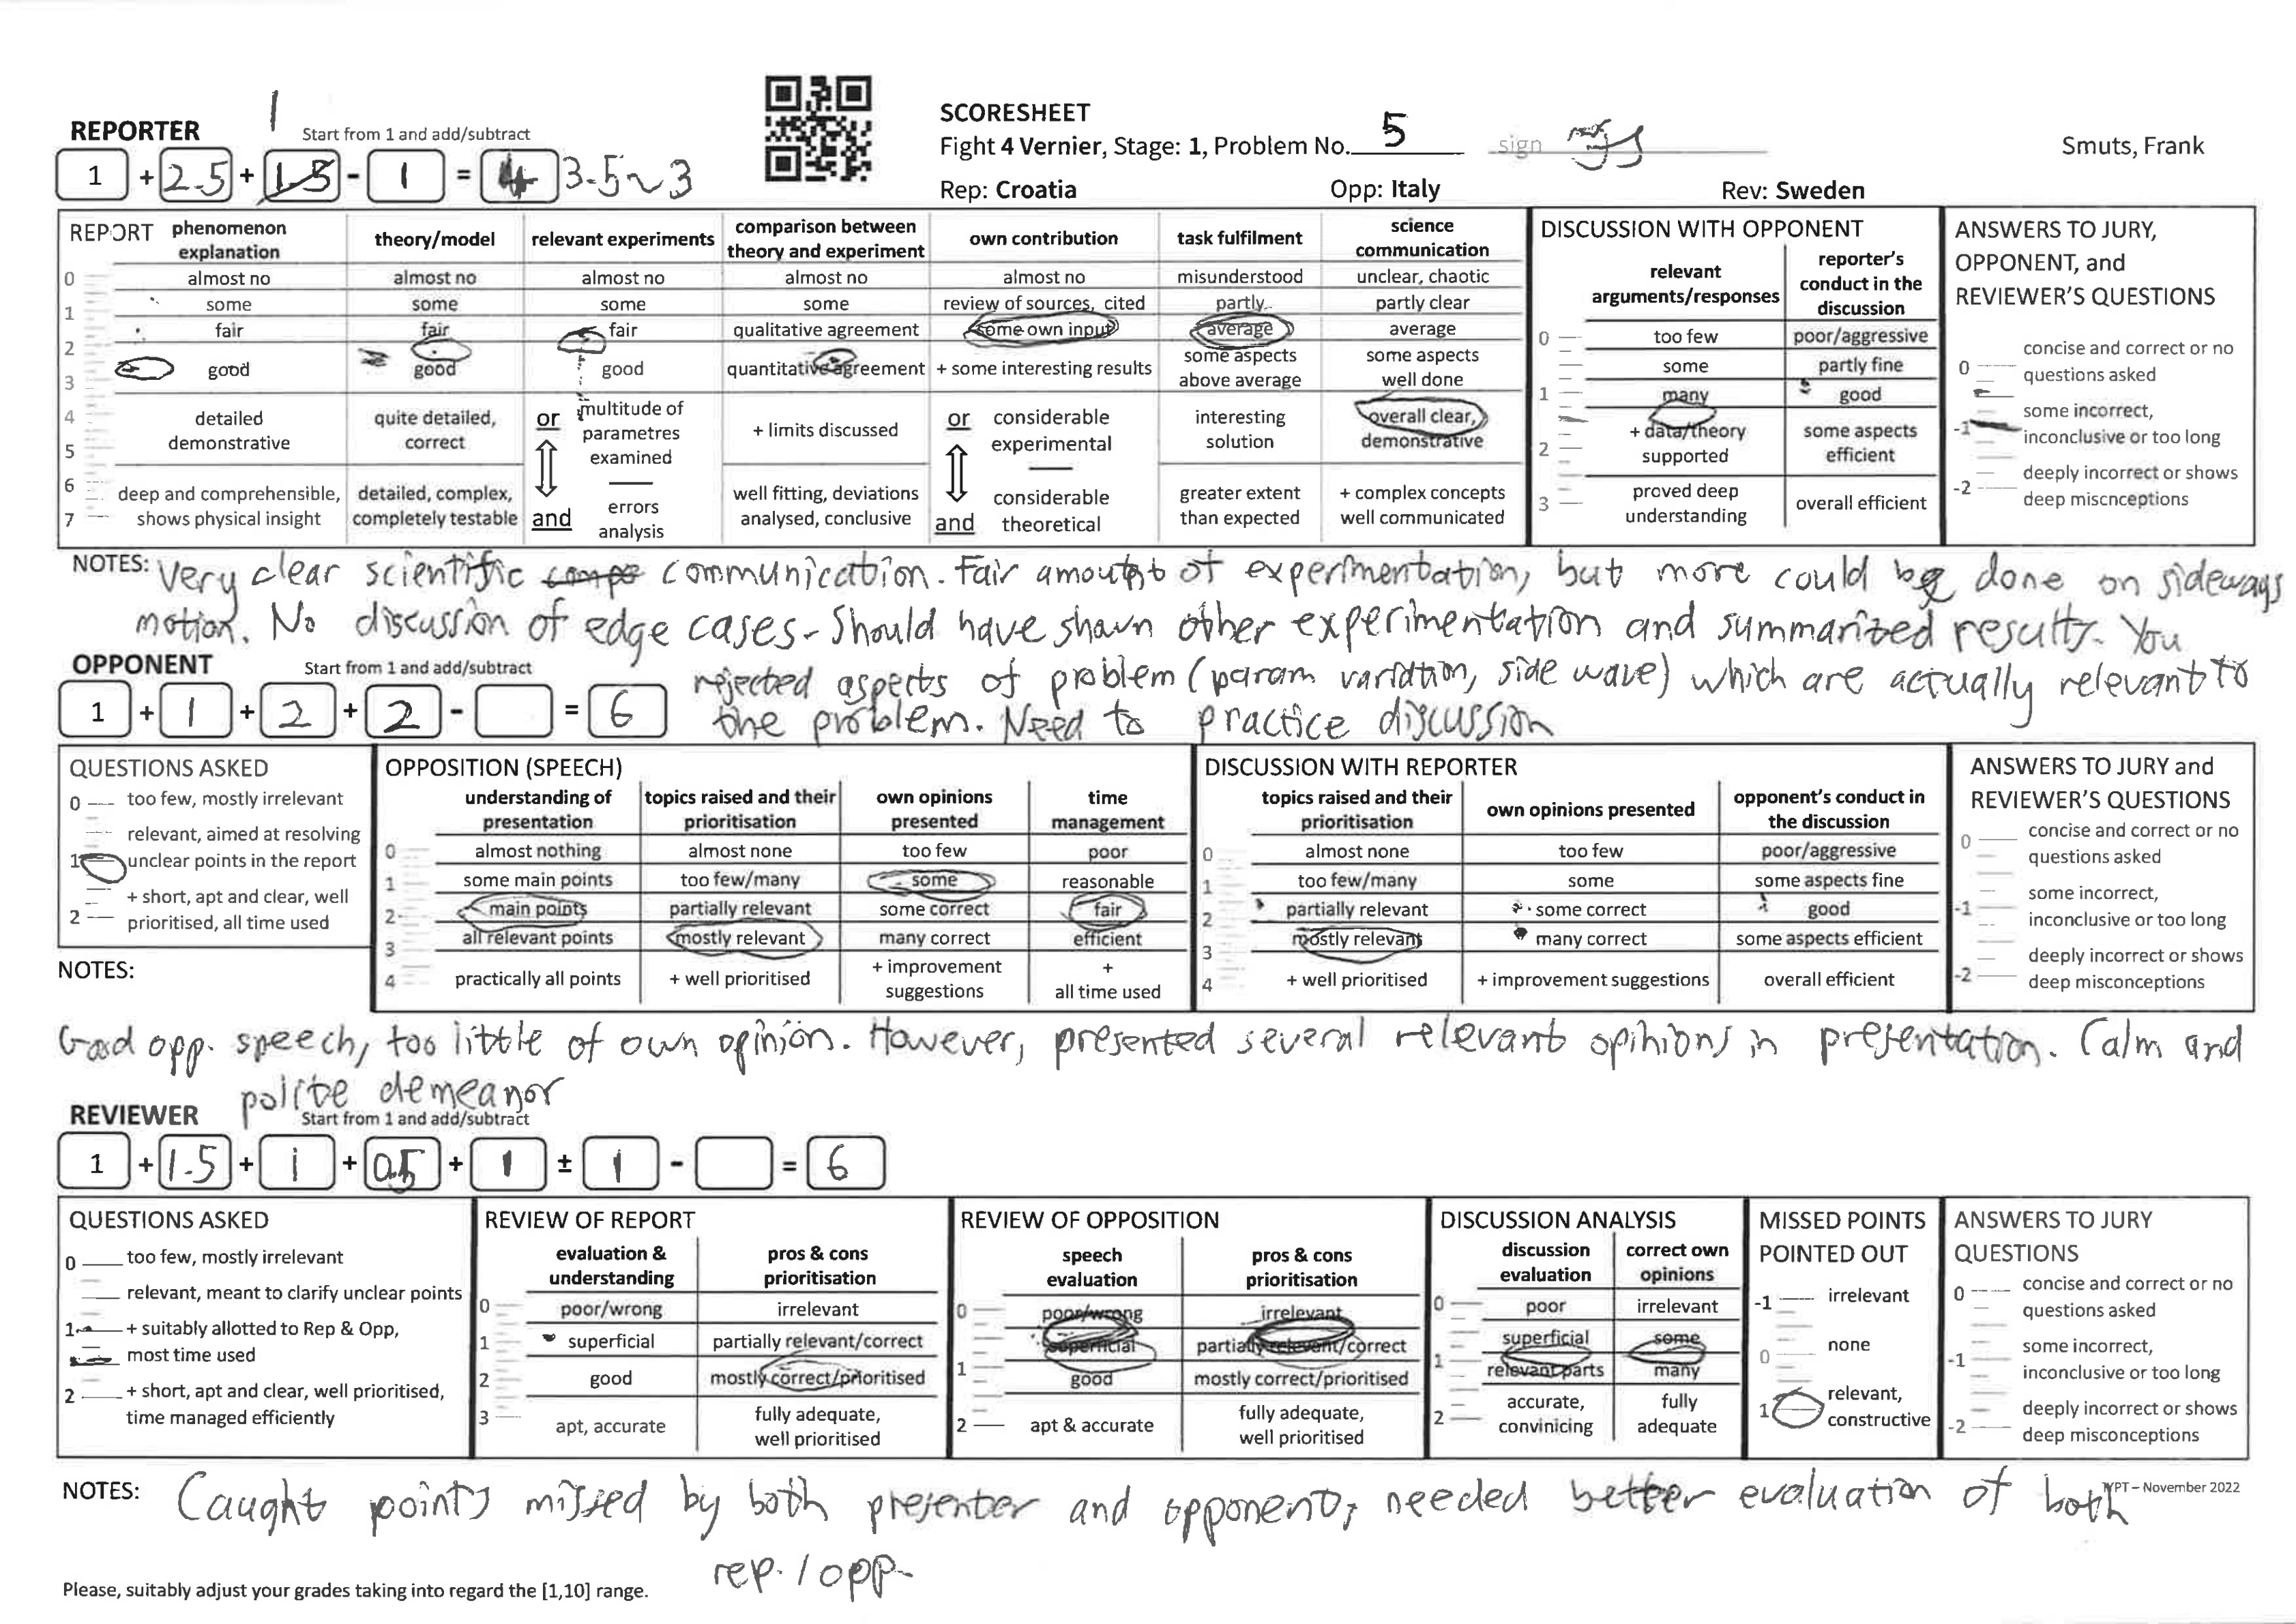 SCORESHEET
REPORTER 1 Start from 1 and add/subtract
Fight 4 Vernier, Stage: 1, Problem No. 5 sign Smuts, Frank
1 + 2.5 + 1.5 - 1 = 4 3.5~3
Rep: Croatia Opp: Italy Rev: Sweden
REPORT
phenomenon explanation
theory/model
relevant experiments
comparison between theory and experiment
own contribution
task fulfilment
science communication
0 almost no almost no almost no almost no almost no misunderstood unclear, chaotic
1 some some some some review of sources, cited partly partly clear
2 fair fair fair qualitative agreement some own input average average
3 good good good quantitative agreement + some interesting results some aspects above average some aspects well done
4 5 detailed demonstrative quite detailed, correct or multitude of parametres examined + limits discussed or considerable experimental interesting solution overall clear, demonstrative
6 7 deep and comprehensible, shows physical insight detailed, complex, completely testable and errors analysis well fitting, deviations analysed, conclusive and considerable theoretical greater extent than expected + complex concepts well communicated
DISCUSSION WITH OPPONENT
relevant arguments/responses
reporter's conduct in the discussion
0 too few poor/aggressive
some partly fine
1 many good
2 + data/theory supported some aspects efficient
3 proved deep understanding overall efficient
ANSWERS TO JURY, OPPONENT, and REVIEWER'S QUESTIONS
0 concise and correct or no questions asked
-1 some incorrect, inconclusive or too long
-2 deeply incorrect or shows deep miscnceptions
NOTES: Very clear scientific communication. Fair amount of experimentation, but more could be done on sideways
motion. No discussion of edge cases. Should have shown other experimentation and summarized results. You
rejected aspects of problem (param variation, side wave) which are actually relevant to
the problem. Need to practice discussion
OPPONENT Start from 1 and add/subtract
1 + 1 + 2 + 2 - = 6
QUESTIONS ASKED
0 too few, mostly irrelevant
relevant, aimed at resolving
1 unclear points in the report
+ short, apt and clear, well
2 prioritised, all time used
OPPOSITION (SPEECH)
understanding of presentation
topics raised and their prioritisation
own opinions presented
time management
0 almost nothing almost none too few poor
1 some main points too few/many some reasonable
2 main points partially relevant some correct fair
3 all relevant points mostly relevant many correct efficient
4 practically all points + well prioritised + improvement suggestions + all time used
DISCUSSION WITH REPORTER
topics raised and their prioritisation
own opinions presented
opponent's conduct in the discussion
0 almost none too few poor/aggressive
1 too few/many some some aspects fine
2 partially relevant some correct good
3 mostly relevant many correct some aspects efficient
4 + well prioritised + improvement suggestions overall efficient
ANSWERS TO JURY and REVIEWER'S QUESTIONS
0 concise and correct or no questions asked
-1 some incorrect, inconclusive or too long
-2 deeply incorrect or shows deep misconceptions
NOTES:
Good opp. speech, too little of own opinion. However, presented several relevant opinions in presentation. Calm and
polite demeanor
REVIEWER Start from 1 and add/subtract
1 + 1.5 + 1 + 0.5 + 1 ± 1 - = 6
QUESTIONS ASKED
0 too few, mostly irrelevant
relevant, meant to clarify unclear points
1 + suitably allotted to Rep & Opp,
most time used
2 + short, apt and clear, well prioritised,
time managed efficiently
REVIEW OF REPORT
evaluation & understanding
pros & cons prioritisation
0 poor/wrong irrelevant
1 superficial partially relevant/correct
2 good mostly correct/prioritised
3 apt, accurate fully adequate, well prioritised
REVIEW OF OPPOSITION
speech evaluation
pros & cons prioritisation
0 poor/wrong irrelevant
superficial partially relevant/correct
1 good mostly correct/prioritised
2 apt & accurate fully adequate, well prioritised
DISCUSSION ANALYSIS
discussion evaluation
correct own opinions
0 poor irrelevant
superficial some
1 relevant parts many
2 accurate, convinicing fully adequate
MISSED POINTS POINTED OUT
-1 irrelevant
0 none
1 relevant, constructive
ANSWERS TO JURY QUESTIONS
0 concise and correct or no questions asked
-1 some incorrect, inconclusive or too long
-2 deeply incorrect or shows deep misconceptions
NOTES: Caught points missed by both presenter and opponent, needed better evaluation of both
rep. / opp.
YPT – November 2022
Please, suitably adjust your grades taking into regard the [1,10] range.